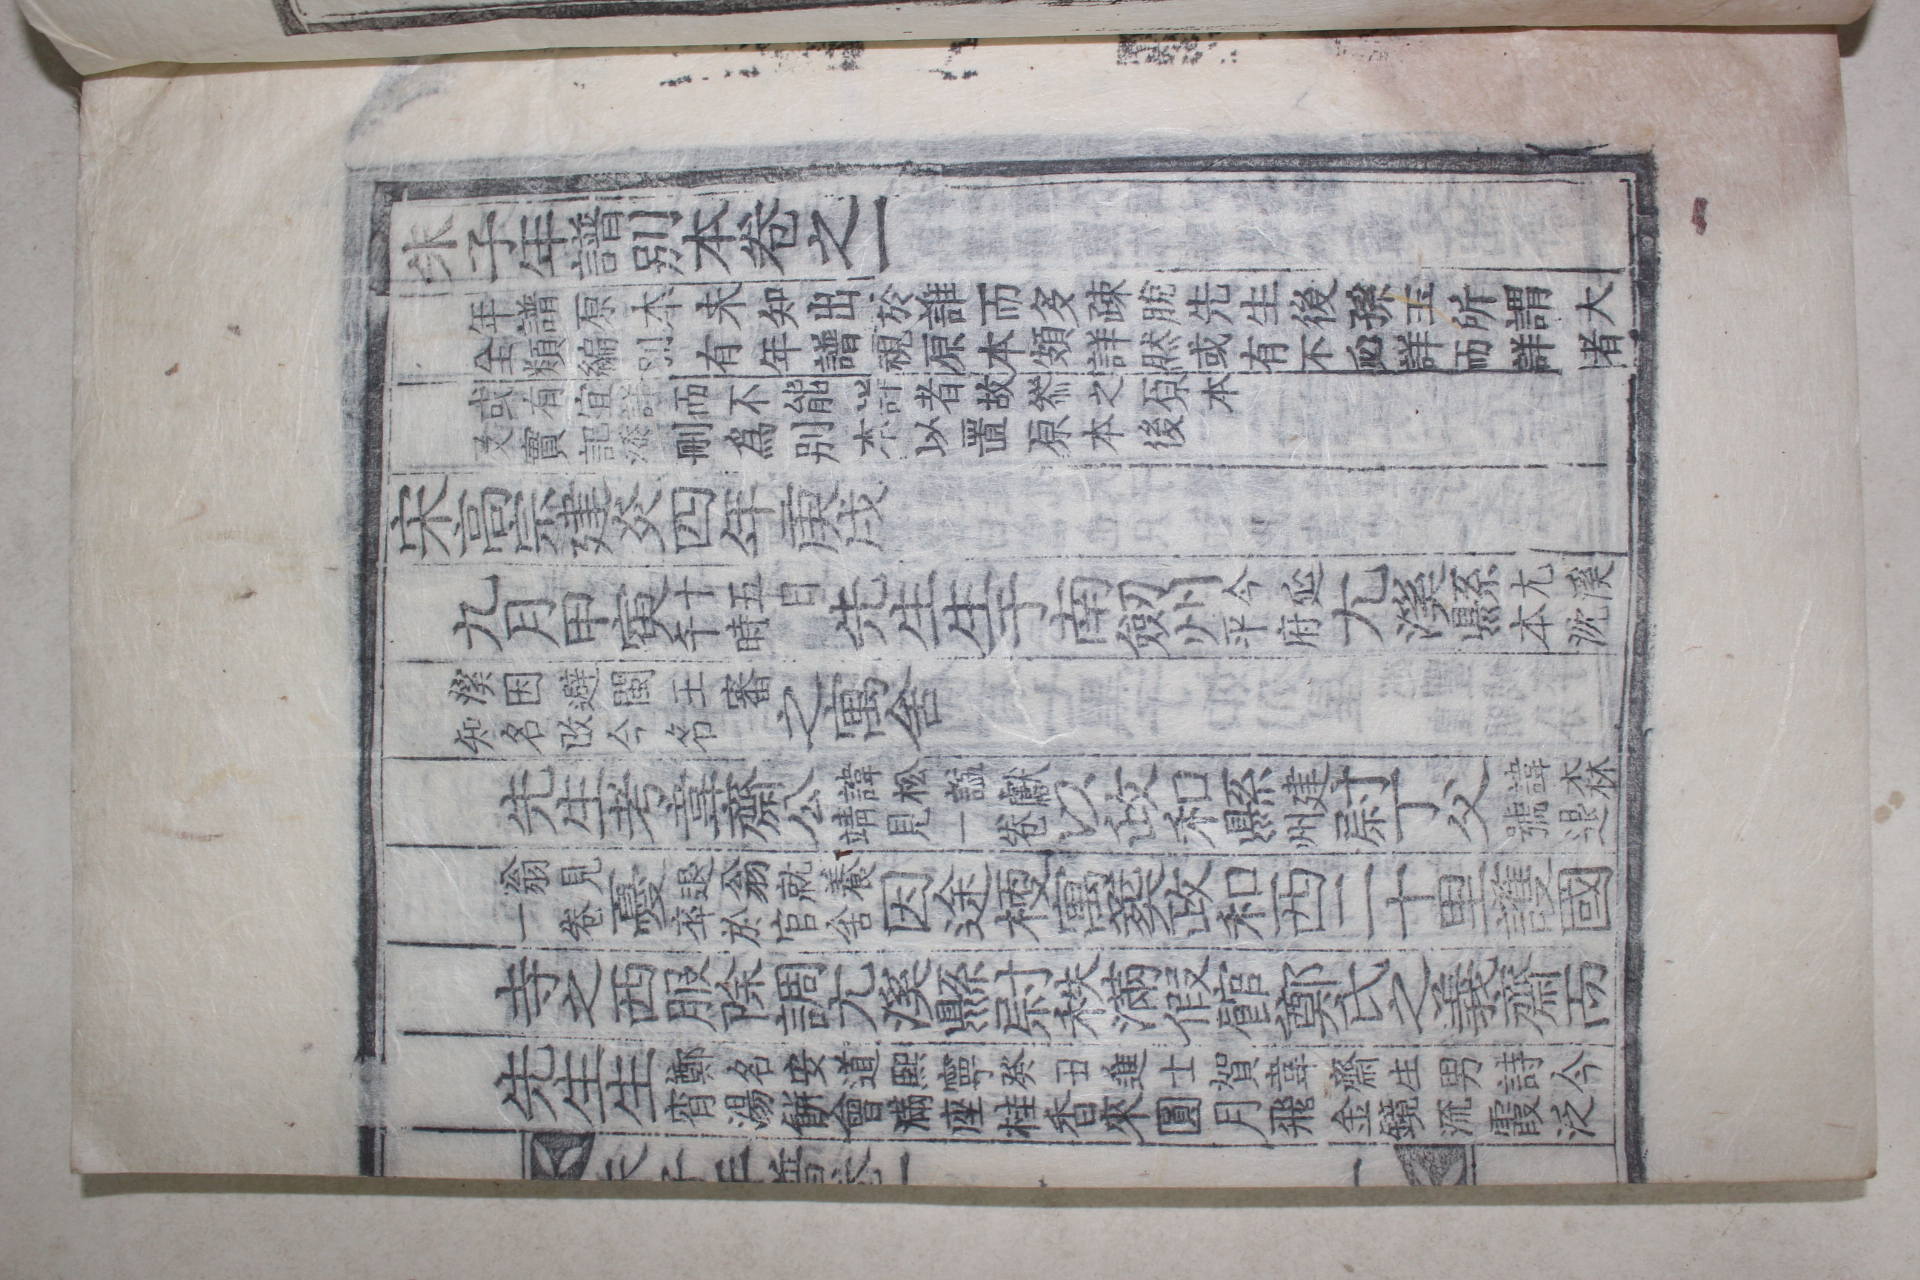 朱子年譜別本卷之一
年譜原本未知出於誰而多疎脫先生後孫玉所謂大
全類編別有年譜視原本頗詳然或有不必詳而詳者
或有宜詳而不能詳者故叅之原本
及實記添刪爲別本以置原本後
宋高宗建炎四年庚戌
九月甲寅十五日午時先生生于南劒州今延平府尤溪縣尤溪本沈
溪因避閩王審知名改今名之寓舍
先生考韋齋公諱松謚獻靖見一卷以政和縣建州尉丁父諱森號退
翁見一卷憂退翁就養卒於官舍因途梗寓葬政和西二十里護國
寺之西服除調尤溪縣尉秩滿假館鄭氏之義齋而
先生生鄭名安道熙寧癸丑進士賀韋齋生男詩今宵湯餠會滿座桂香來圓月飛金鏡流霞泛
朱子年譜卷一
一